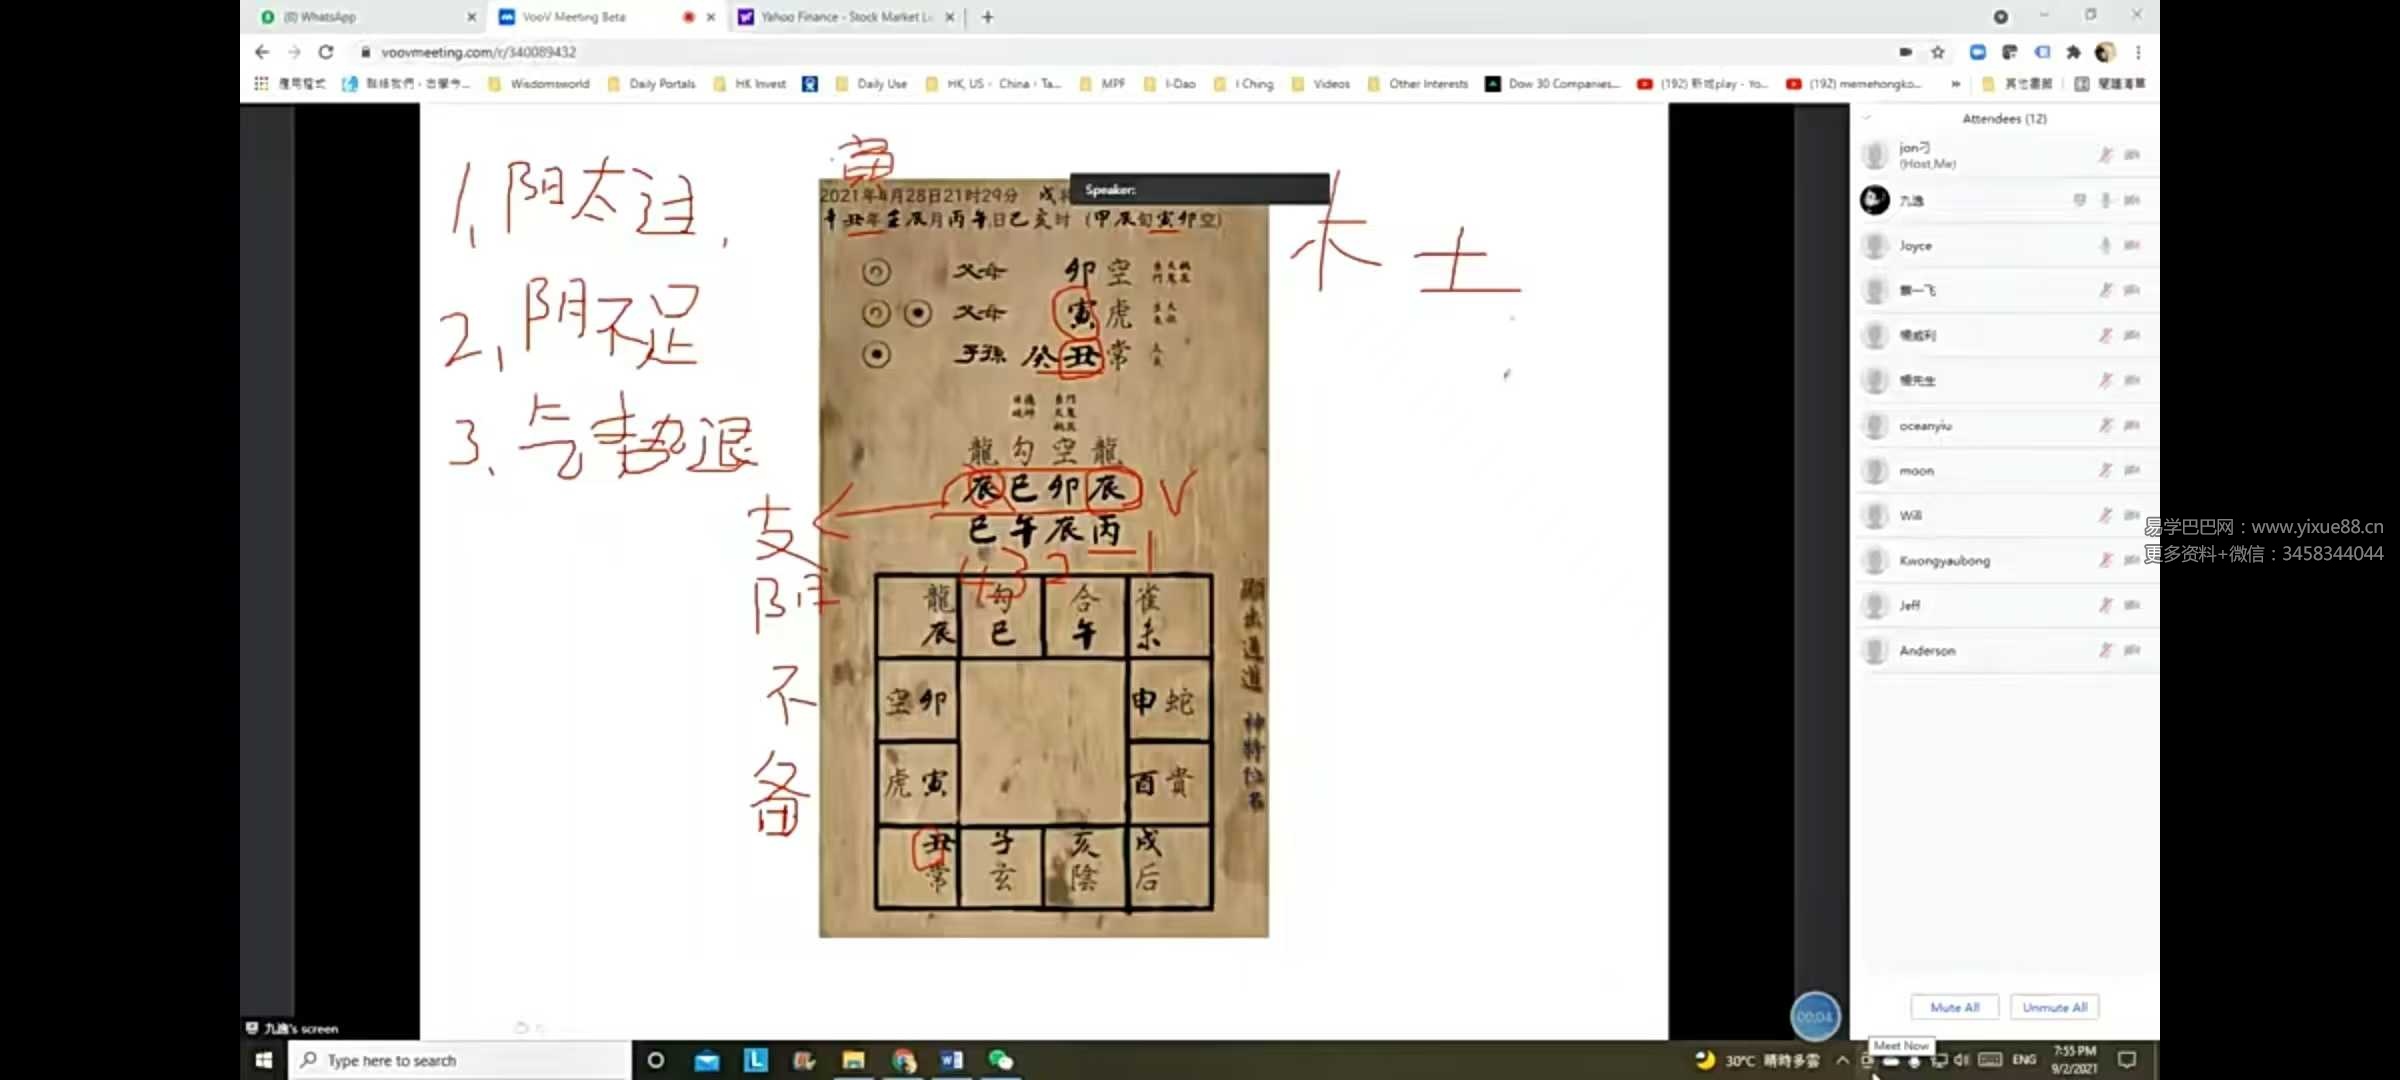 (6) WhatsApp
VooV Meeting Beta
Yahoo Finance - Stock Market L
voovmeeting.com/r/340089432
應用程式
Wisdomsworld
Daily Portals
HK Invest
Daily Use
HK, US、China、Ta...
MPF
I-Dao
I Ching
Videos
Other Interests
Dow 30 Companies...
(192) 新城play - Yo...
(192) memehongko...
»
其他書籤
閱讀清單
Attendees (12)
jon刁
(Host,Me)
九逸
Joyce
楊先生
oceanyiu
moon
Will
Kwongyaubong
Jeff
Anderson
Mute All
Unmute All
1、阴太过,
2、阴不足
3、气势退
寅
木 土
Speaker:
2021年4月28日21时29分 戌将
辛丑年壬辰月丙午日己亥时 (甲辰旬寅卯空)
父母 卯空
父母 寅虎
子孫 癸丑常
龍勾空龍
辰巳卯辰
巳午辰丙
V
4 3 2 1
支阴不备
龍 勾 合 雀
辰 巳 午 未
空卯 申蛇
虎寅 酉貴
丑 子 亥 戌
常 玄 陰 后
易学巴巴网：www.yixue88.cn
更多资料+微信：3458344044
00:04
九逸's screen
Meet Now
Type here to search
30°C 晴時多雲
ENG
7:55 PM
9/2/2021